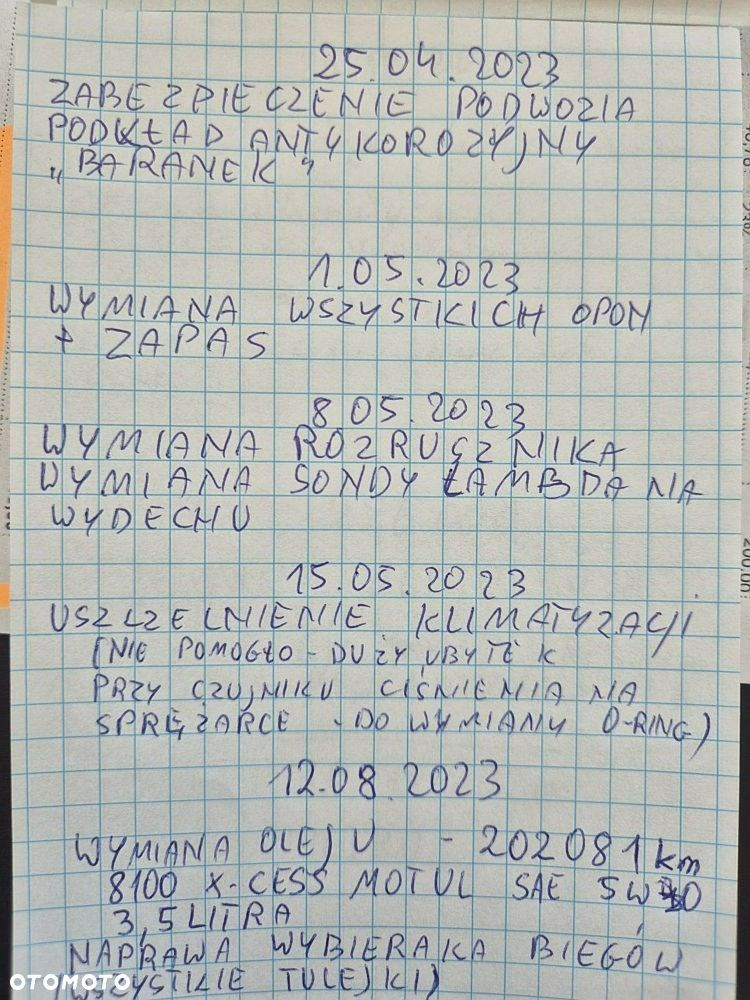 25.04.2023
ZABEZPIECZENIE PODWOZIA
PODKŁAD ANTYKOROZYJNY
„BARANEK"
1.05.2023
WYMIANA WSZYSTKICH OPON
+ ZAPAS
8.05.2023
WYMIANA ROZRUSZNIKA
WYMIANA SONDY ŁAMBDA NA
WYDECHU
15.05.2023
USZCZELNIENIE KLIMATYZACJI
(NIE POMOGŁO - DUŻY UBYTEK
PRZY CZUJNIKU CIŚNIENIA NA
SPRĘŻARCE - DO WYMIANY O-RING)
12.08.2023
WYMIANA OLEJU - 202081 km
8100 X-CESS MOTUL SAE
3,5 LITRA
NAPRAWA WYBIERAKA BIEGÓW
(WSZYSTKIE TULEJKI)
OTOMOTO